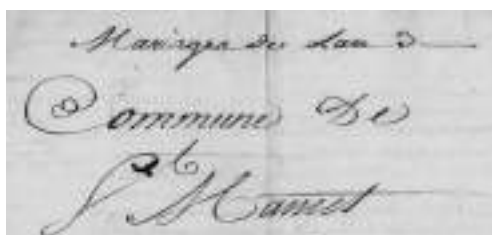 Mariages de Lan 3
Commune De
St Mamet